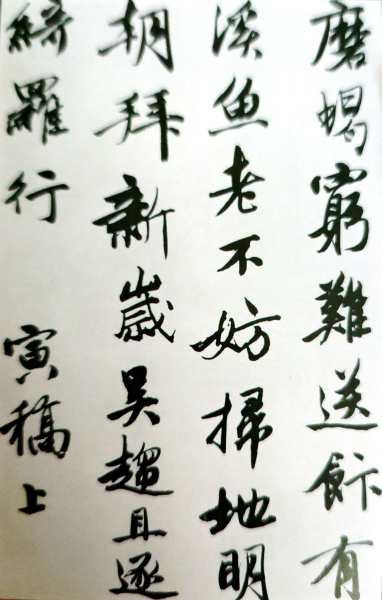 磨蝎窮難送餘有
溪魚老不妨掃地明
朝拜新歲吳趨且逐
綺羅行　寅稿上